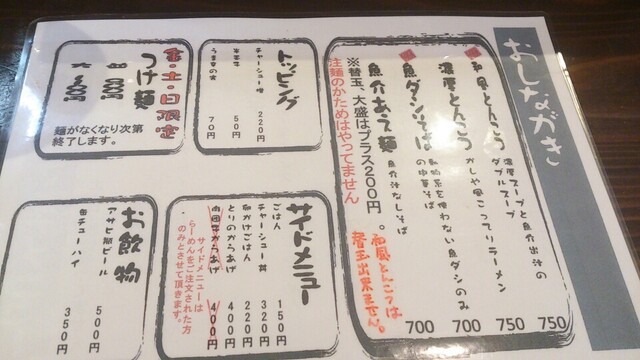 おしながき
和風とんこつ 750
濃厚スープと魚介出汁の
ダブルスープ
濃厚とんこつ 750
かしや風こってりラーメン
魚ダシそば 700
動物系を使わない魚ダシのみ
の中華そば
魚介あえ麺 700
魚介汁なしそば
※替玉、大盛はプラス200円。
注麺のかためはやってません
和風とんこつは
替玉出来ません。
トッピング
チャーシュー増 220円
味玉 50円
うまきの実 70円
金・土・日限定
つけ麺
並
大
麺がなくなり次第
終了します。
サイドメニュー
ごはん 150円
チャーシュー丼 320円
和かけごはん 220円
とりのからあげ 400円
肉団子からあげ 400円
サイドメニューは
らーめんをご注文された方
のみとさせて頂きます。
お飲物
アサヒ瓶ビール 500円
缶チューハイ 350円